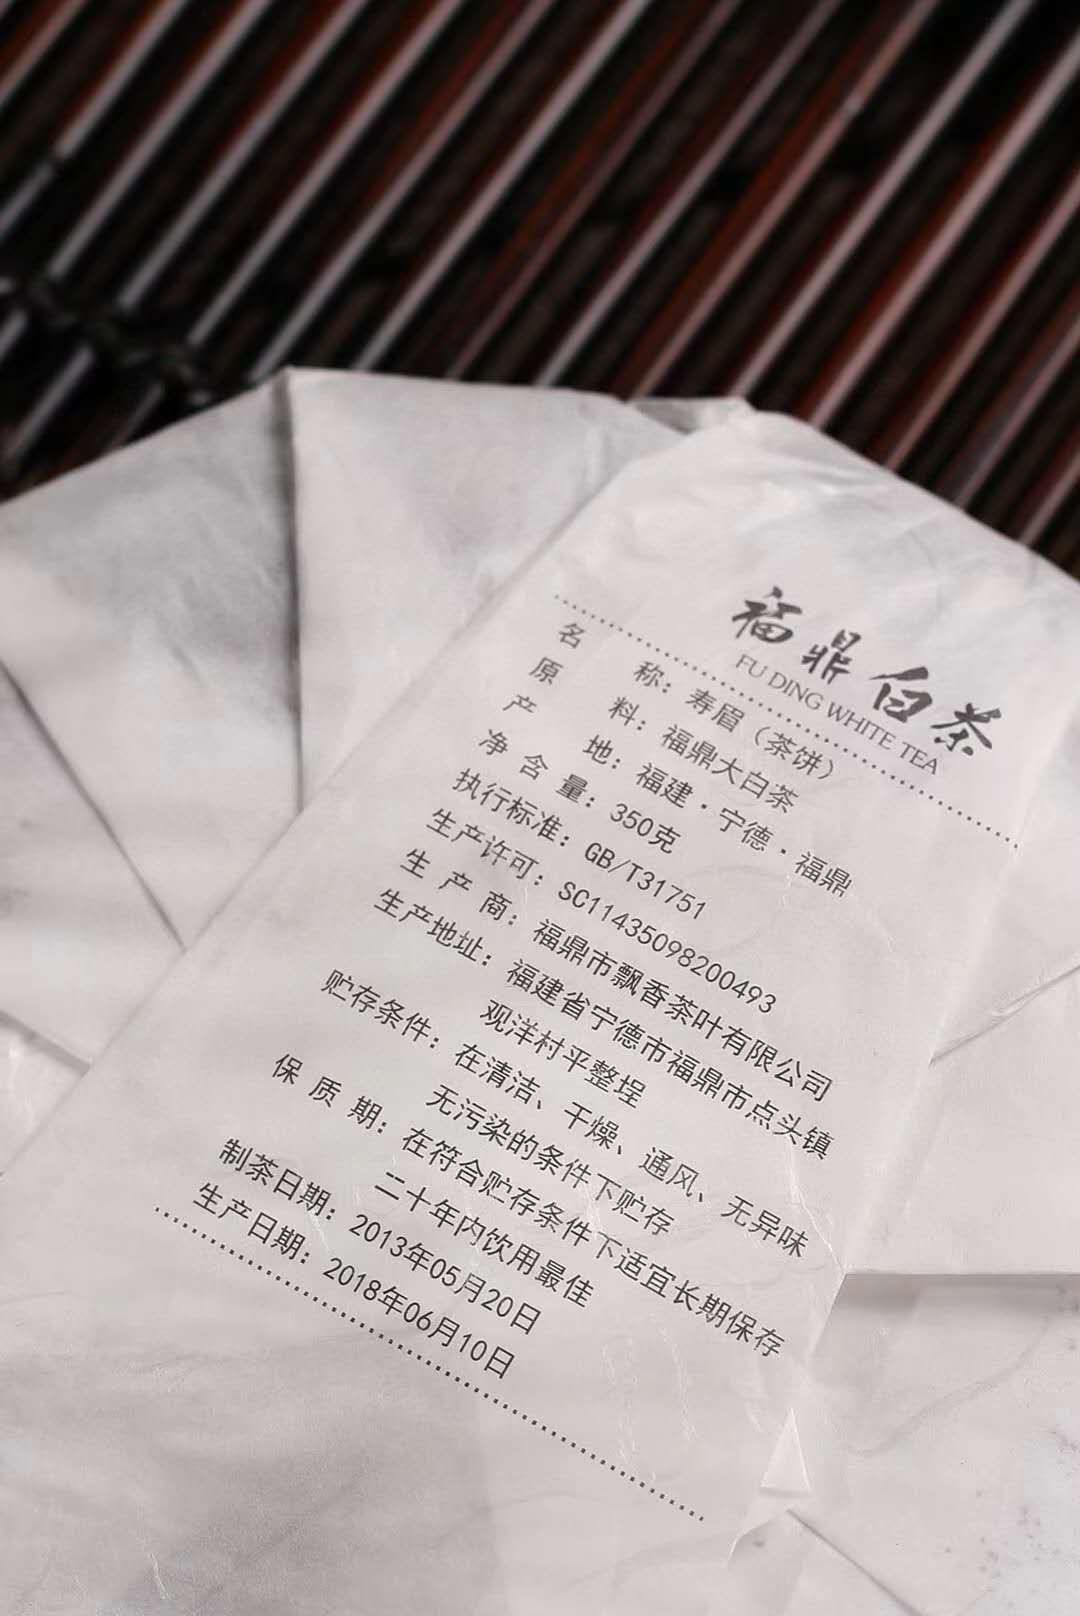 福鼎白茶
FU DING WHITE TEA
名称：寿眉（茶饼）
原料：福鼎大白茶
产地：福建·宁德·福鼎
净含量：350克
执行标准：GB/T31751
生产许可：SC11435098200493
生产商：福鼎市飘香茶叶有限公司
生产地址：福建省宁德市福鼎市点头镇
观洋村平整埕
贮存条件：在清洁、干燥、通风、无异味
无污染的条件下贮存
保质期：在符合贮存条件下适宜长期保存
二十年内饮用最佳
制茶日期：2013年05月20日
生产日期：2018年06月10日